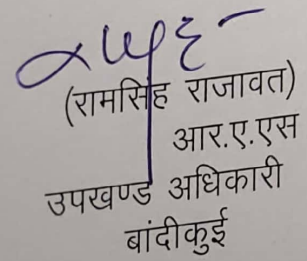 (रामसिंह राजावत)
आर.ए.एस
उपखण्ड अधिकारी
बांदीकुई